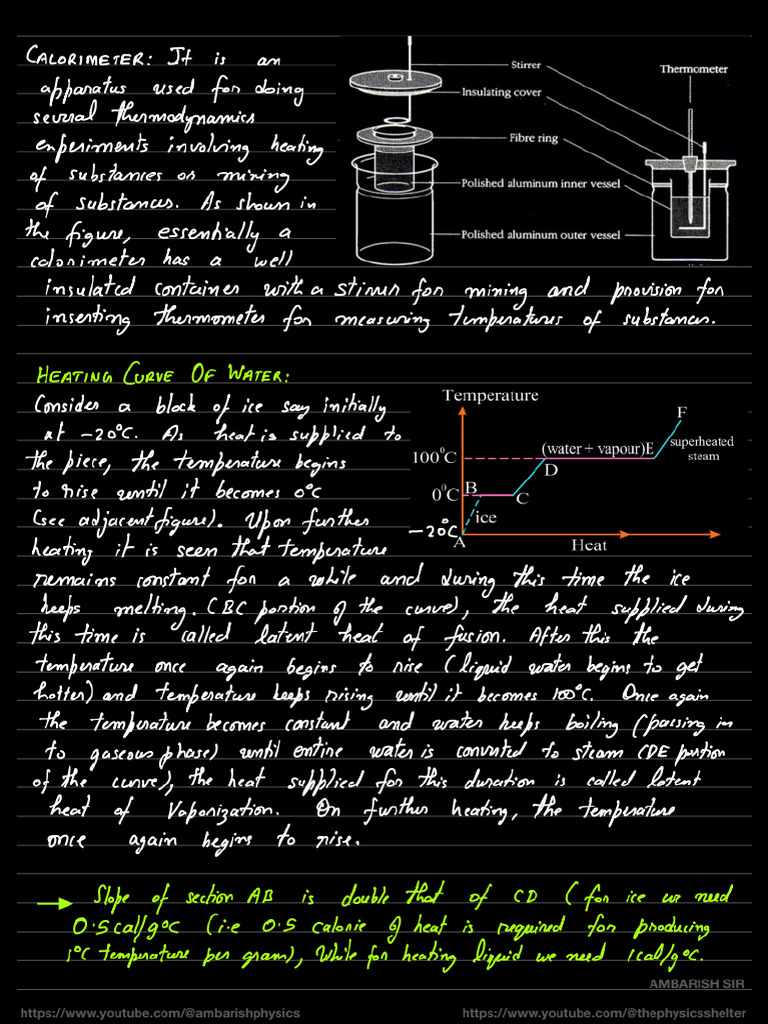 CALORIMETER: It is an
apparatus used for doing
several thermodynamics
experiments involving heating
of substances or mixing
of substances. As shown in
the figure, essentially a
calorimeter has a well
insulated container with a stirrer for mixing and provision for
inserting thermometer for measuring temperatures of substances.
Stirrer
Thermometer
Insulating cover
Fibre ring
Polished aluminum inner vessel
Polished aluminum outer vessel
HEATING CURVE OF WATER:
Consider a block of ice say initially
at -20°C. As heat is supplied to
the piece, the temperature begins
to rise until it becomes 0°C
(see adjacent figure). Upon further
heating it is seen that temperature
remains constant for a while and during this time the ice
keeps melting. (BC portion of the curve), the heat supplied during
this time is called latent heat of fusion. After this the
temperature once again begins to rise (liquid water begins to get
hotter) and temperature keeps rising until it becomes 100°C. Once again
the temperature becomes constant and water keeps boiling (passing in
to gaseous phase) until entire water is converted to steam (DE portion
of the curve), the heat supplied for this duration is called latent
heat of Vaporization. On further heating, the temperature
once again begins to rise.
Temperature
F
100°C
(water + vapour)E
superheated
steam
D
0°C B
C
ice
-20°C
A
Heat
→ Slope of section AB is double that of CD (for ice we need
0.5cal/g°C (i.e 0.5 calorie of heat is required for producing
1°C temperature per gram), While for heating liquid we need 1cal/g°C.
AMBARISH SIR
https://www.youtube.com/@ambarishphysics
https://www.youtube.com/@thephysicsshelter